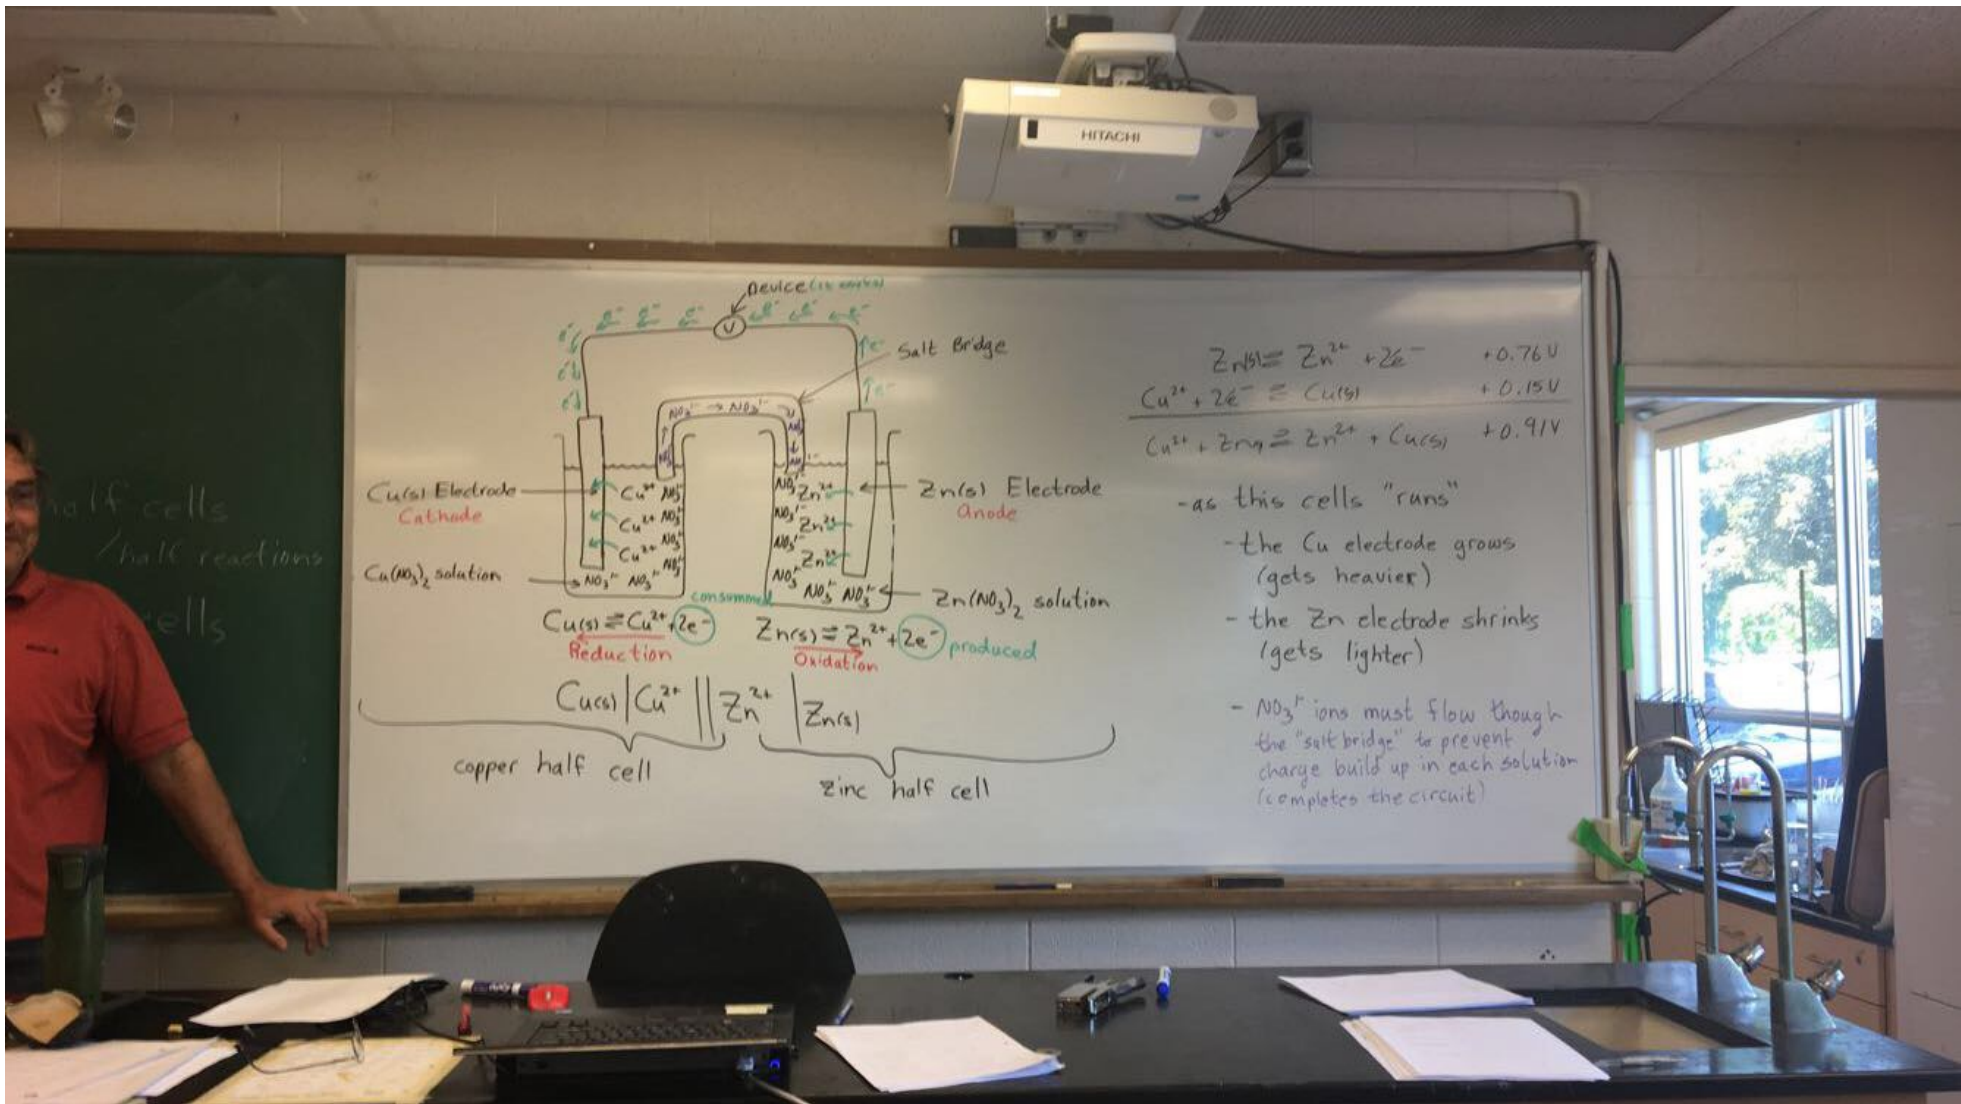 HITACHI
Device
V
e⁻ e⁻ e⁻ e⁻ e⁻ e⁻
e⁻
e⁻
e⁻
e⁻
e⁻
Salt Bridge
NO₃¹⁻ → NO₃¹⁻
Cu(s) Electrode
Cathode
Cu²⁺ NO₃¹⁻
Cu²⁺ NO₃¹⁻
Cu²⁺ NO₃¹⁻
NO₃¹⁻
Cu(NO₃)₂ solution
NO₃¹⁻ NO₃¹⁻
NO₃¹⁻ Zn²⁺
NO₃¹⁻ Zn²⁺
NO₃¹⁻ Zn²⁺
NO₃¹⁻
NO₃¹⁻ NO₃¹⁻
Zn(s) Electrode
anode
Zn(NO₃)₂ solution
consummed
Cu(s) ⇌ Cu²⁺ + 2e⁻
Reduction
Zn(s) ⇌ Zn²⁺ + 2e⁻ produced
Oxidation
Cu(s) | Cu²⁺ || Zn²⁺ | Zn(s)
copper half cell
zinc half cell
Zn(s) ⇌ Zn²⁺ + 2e⁻ +0.76V
Cu²⁺ + 2e⁻ ⇌ Cu(s) +0.15V
Cu²⁺ + Zn(s) ⇌ Zn²⁺ + Cu(s) +0.91V
-as this cells "runs"
-the Cu electrode grows
(gets heavier)
- the Zn electrode shrinks
(gets lighter)
- NO₃¹⁻ ions must flow though
the "salt bridge" to prevent
charge build up in each solution
(completes the circuit)
half cells
/half reactions
cells